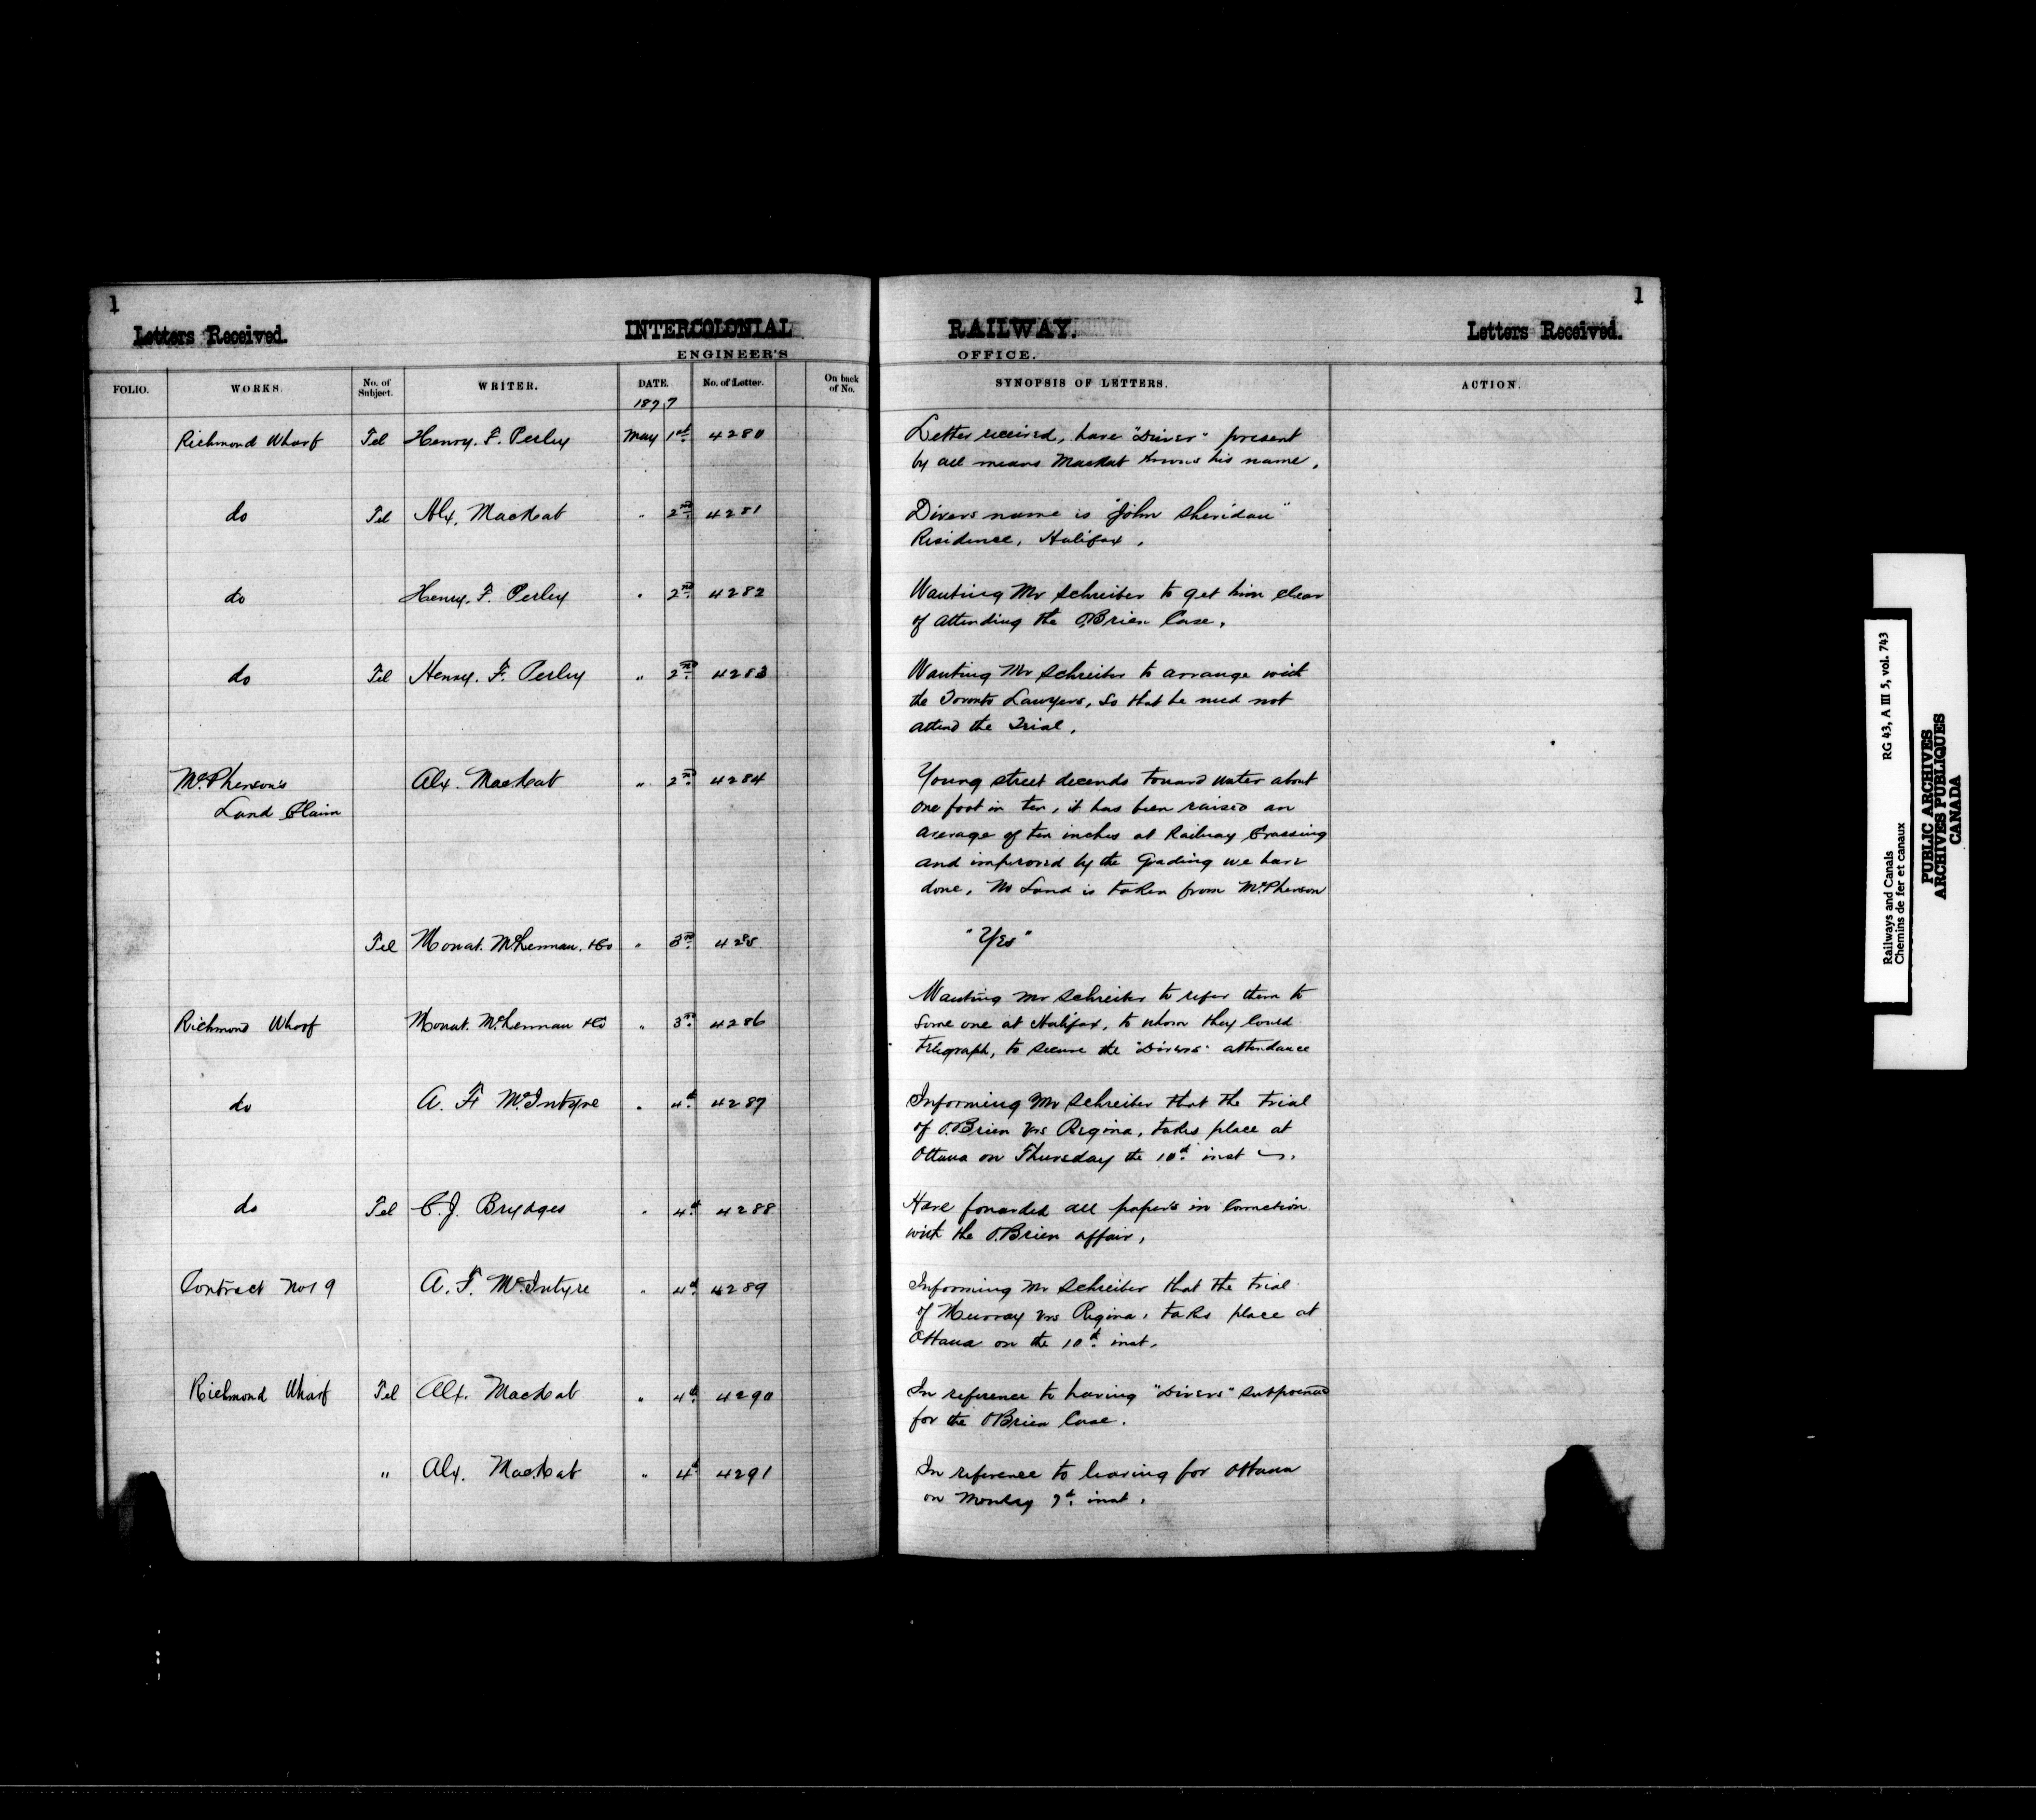 1
Letters Received.
INTERCOLONIAL
ENGINEER'S
RAILWAY.
OFFICE.
Letters Received.
1
FOLIO. WORKS. No. of Subject. WRITER. DATE. No. of Letter. On back of No. SYNOPSIS OF LETTERS. ACTION.
1877
Richmond Wharf Tel Henry. F. Perley May 1st. 4280 Letter received, have "Diver" present
by all means MacNab knows his name.
do Tel Alx. MacNab " 2nd. 4281 Divers name is "John Sheridan"
Residence, Halifax.
do Henry. F. Perley " 2nd. 4282 Wanting Mr Schreiber to get him clear
of attending the O'Brien Case.
do Tel Henry. F. Perley " 2nd. 4283 Wanting Mr Schreiber to arrange with
the Toronto Lawyers, so that he need not
attend the Trial.
McPherson's Alx. MacNab " 2nd. 4284 Young street decends toward water about
Land Claim one foot in ten, it has been raised an
average of ten inches at Railway Crossing
and improved by the Grading we have
done. No Land is taken from McPherson
Tel Mowat. McLennan. & Co " 3rd. 4285 "Yes"
Wanting Mr Schreiber to refer them to
Richmond Wharf Mowat. McLennan & Co " 3rd. 4286 some one at Halifax, to whom they could
telegraph, to secure the "Divers" attendance
do A. F. McIntyre " 4th. 4287 Informing Mr Schreiber that the trial
of O'Brien vrs Regina, takes place at
Ottawa on Thursday the 10th. inst.
do Tel C. J. Brydges " 4th. 4288 Have forwarded all papers in connection
with the O'Brien affair.
Contract No 19 A. F. McIntyre " 4th. 4289 Informing Mr Schreiber that the trial
of Murray vrs Regina, takes place at
Ottawa on the 10th. inst.
Richmond Wharf Tel Alx. MacNab " 4th. 4290 In reference to having "Divers" subpoenaed
for the O'Brien Case.
" Alx. MacNab " 4th. 4291 In reference to leaving for Ottawa
on Monday 7th. inst.
Railways and Canals RG 43, A III 5, vol. 743
Chemins de fer et canaux
PUBLIC ARCHIVES
ARCHIVES PUBLIQUES
CANADA